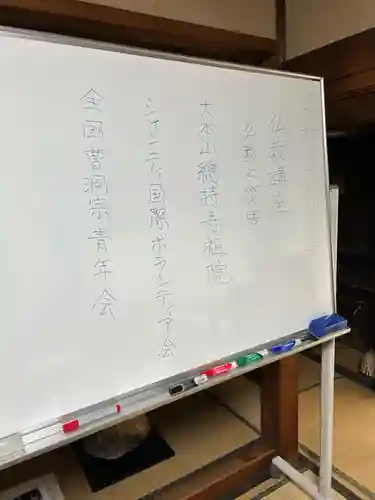 仏教講座
仏教と災害
大本山總持寺祖院
シャンティ国際ボランティア会
全国曹洞宗青年会